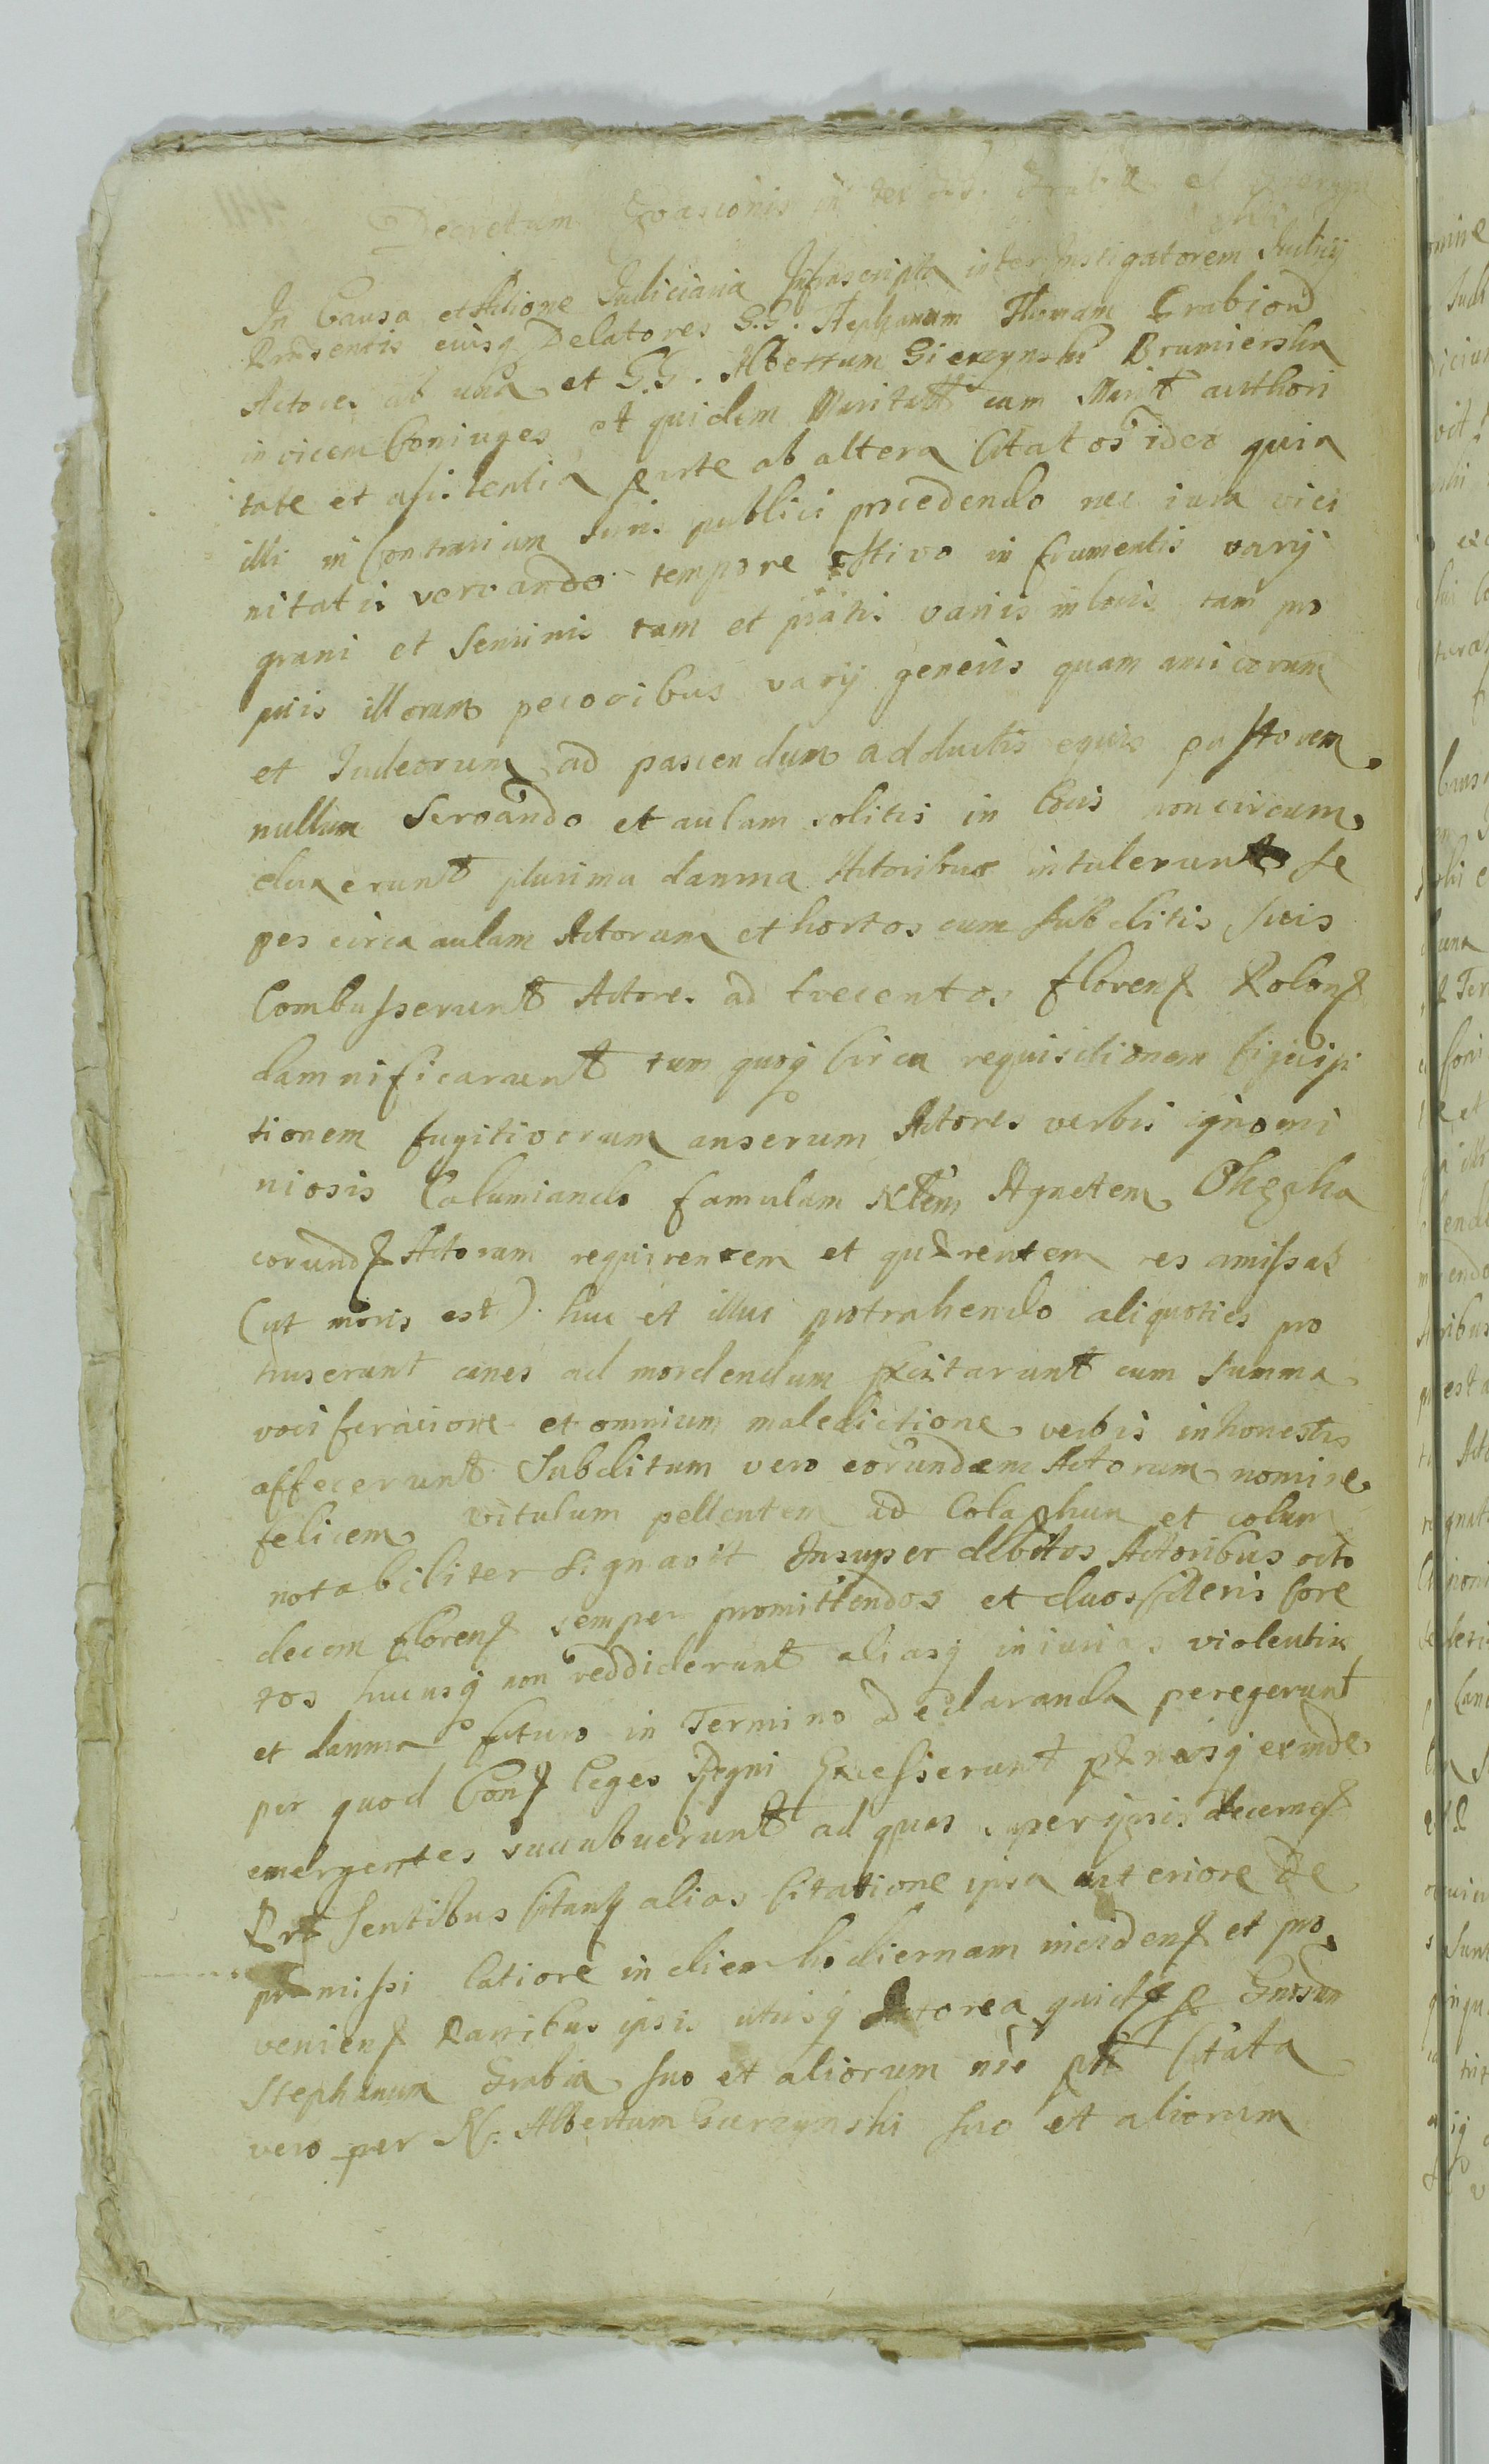 Decretum Evasionis inter et
In Causa et Actione Judiciaria Infrascripta inter Instigatorem Judicij
Præsentis eiusq Delatores G.G. Stephanum Thomam Grabiond
Actores ab una et G.G. Albertum Gierzynski Brumierska
invicem Coniuges et quidem Maritatt cum Marit authori
tate et asistentia parte ab altera Citatos ideo quia
illi in Contrarium Juris publici procedendo nec iura vici
nitatis servando tempore æstivo in frumentis varij
grani et Seminis tam et pratis variis in locis tam pro
priis illorum pecoribus varij generis quam amicorum
et Judeorum ad pascendum adductis equis pastorem
nullum Servando et aulam solitis in locis non circum
duxerunt plurima damna Actoribus intulerunt Se
pes circa aulam Actorum et hortos cum Subditis suis
Combusserunt Actores ad trecentos floren Polon
damnificarunt tum quoq Circa requisitionem
tionem fugitivorum anserum Actores verbis ignomi
niosis Calumiando famulam Agnetem
eorund Actorum requirentem et quærentem res amissas
(ut moris est) huc et illuc protrahendo aliquoties pro
truserunt canes ad mordendum Excitarunt cum Summa
vociferacione et omnium maledictione verbis inhonestis
affecerunt Subditum vero eorundem Actorum nomine
felicem vitulum pellentem ad Colaphum et colum
notabiliter Signavit Insuper debitos Actoribus octo
decem floren semper promittendos et duos sideris Core
tos hucusq non reddiderunt aliasq iniurias violentias
et damna futuro in Termino Declaranda peregerunt
per quod Con Leges Regni Excesserunt pænasq exinde
emergentes succubuerunt ad quas super ipsis decernen
Præsentibus Citant alias Citatione ipsa anteriore De
præmissi latiore in diem hodiernam inciden et pro
venien Partibus ipsis utrisq Actorea quid p Gnosum
Stephanum Grabia suo et aliorum nôe Citata
vero per N. Albertum Gierzynski suo et aliorum